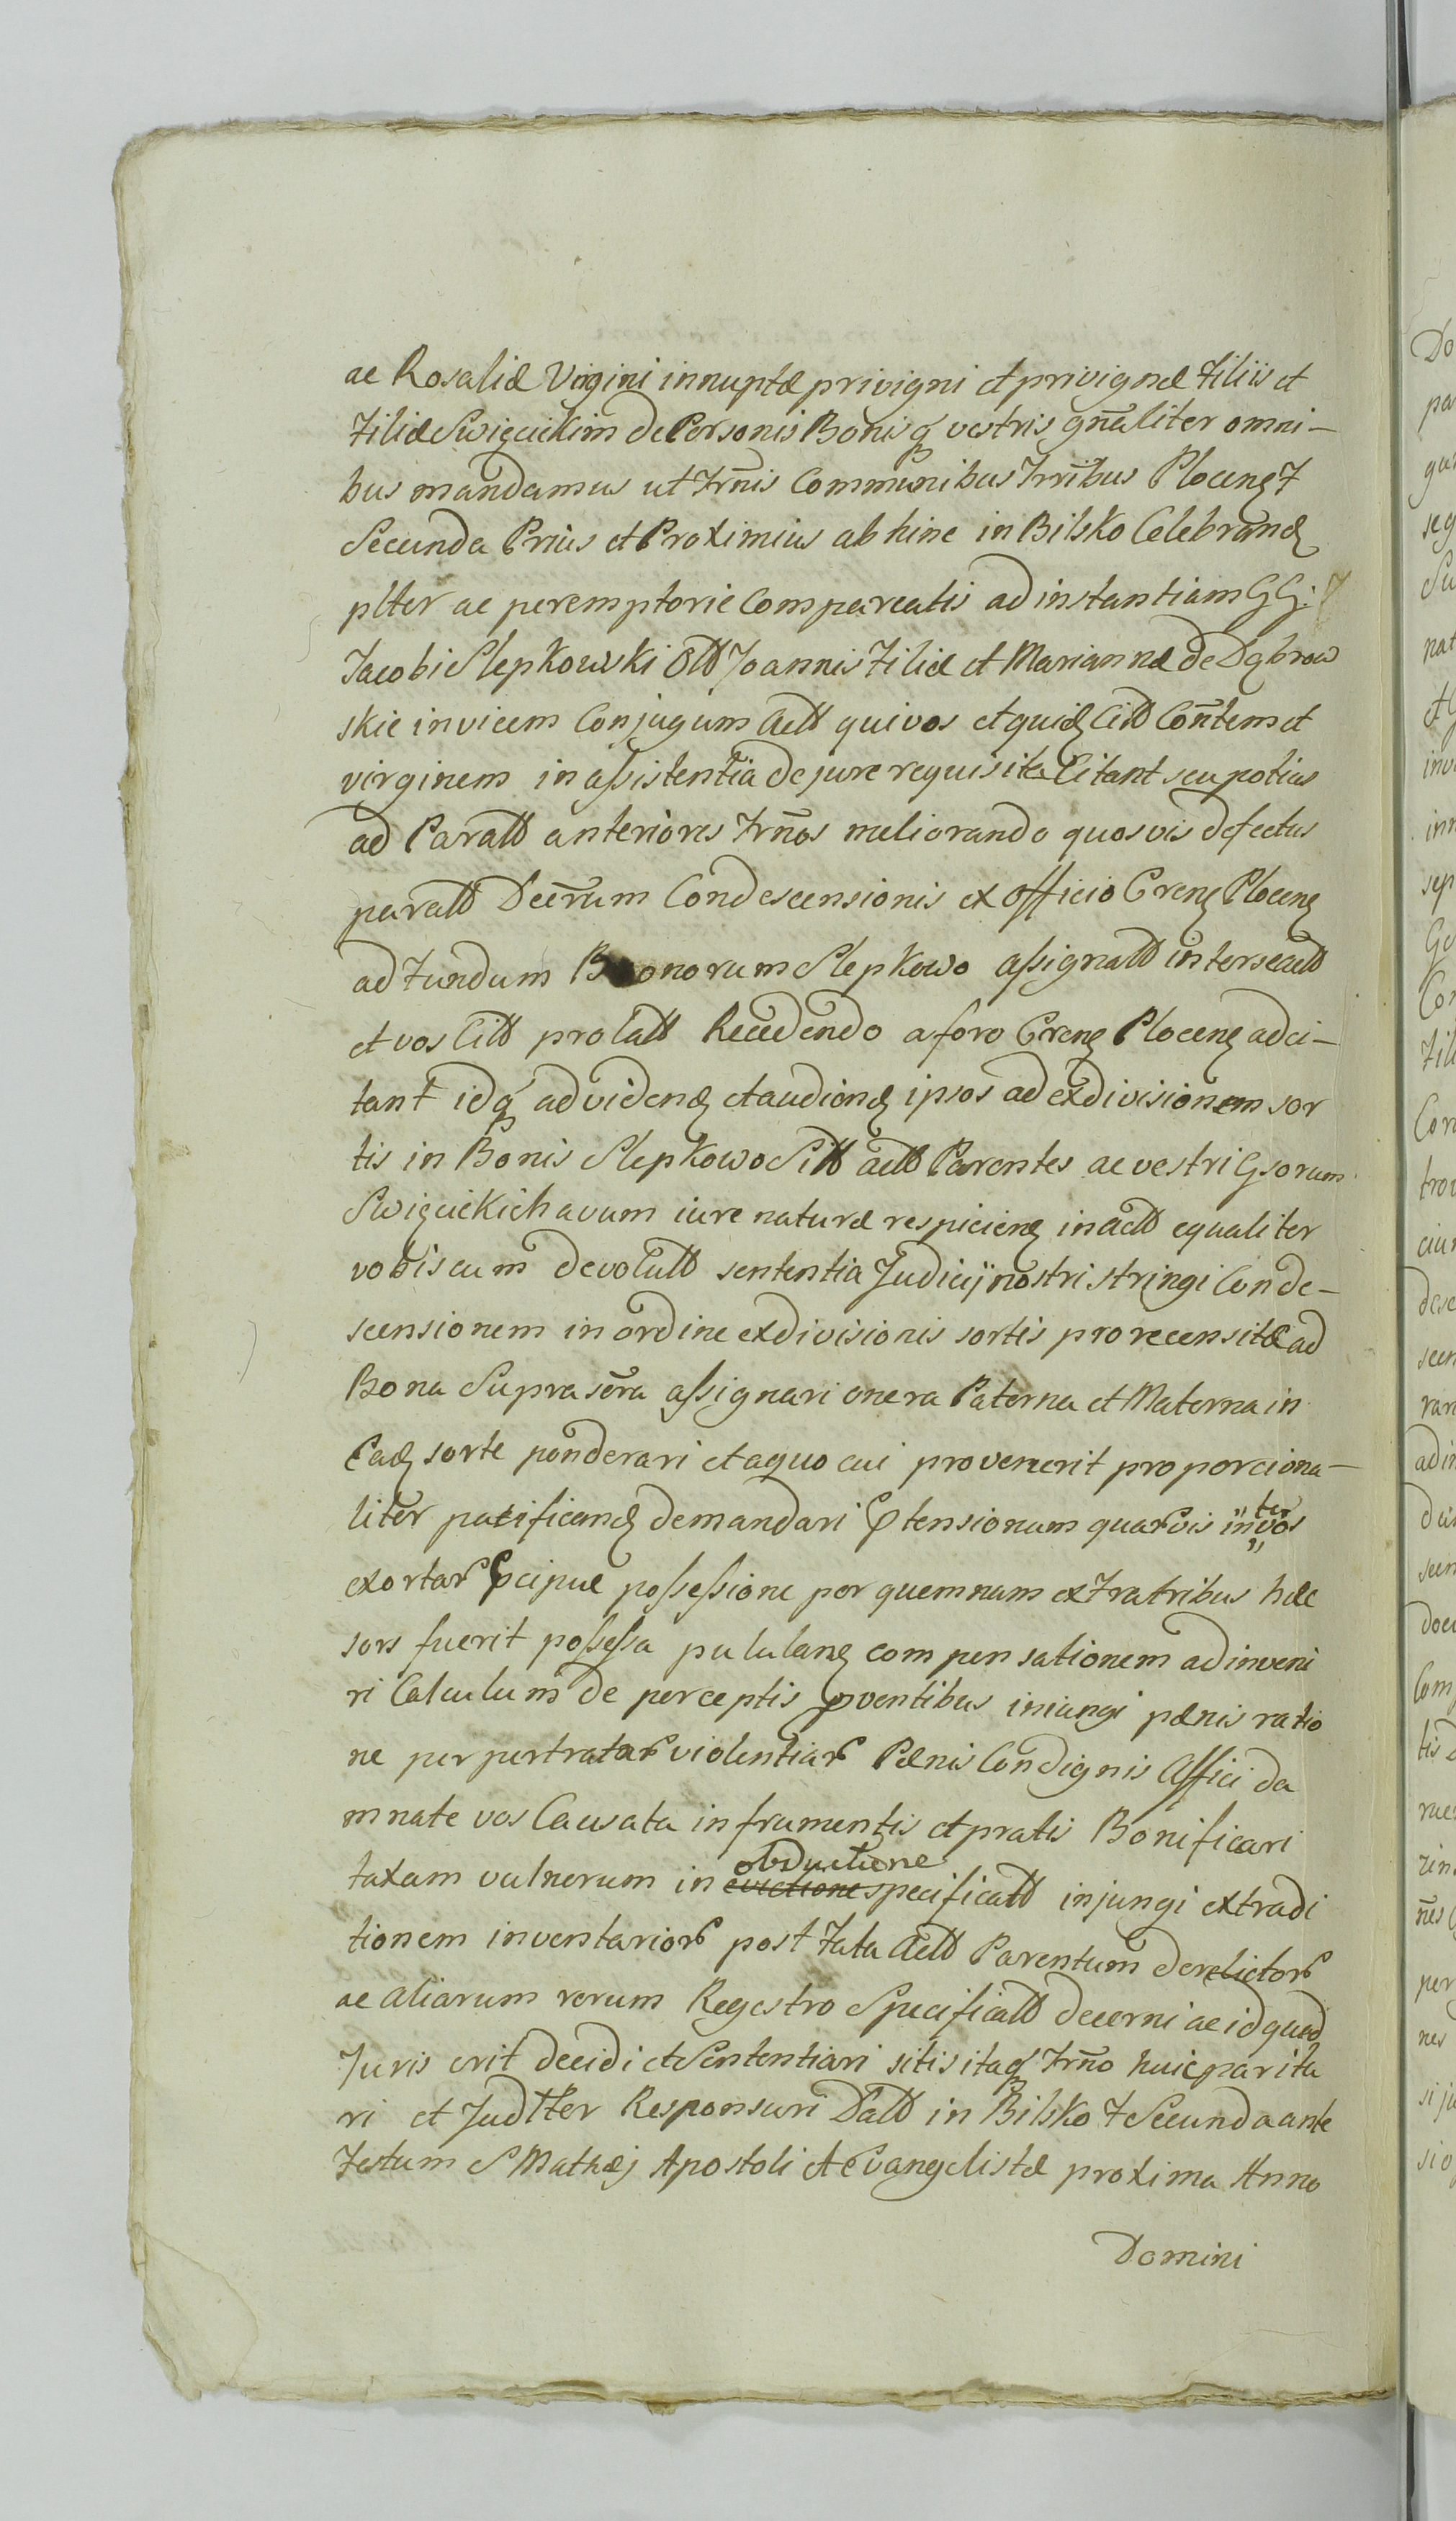 ac Rosaliæ Virgini innuptæ privigni et privignæ Filiis et
Filiæ Swięcickim de Personis Bonisq vestris gn̄aliter omni-
bus mandamus ut Trn̄is Communibus Trrībus Plocen F
Secunda Prius et Proximius ab hinc in Bilsko Celebrand
plter ac peremptorie Compareatis ad instantiam GG:
Jacobi Slepkowski Olt Joannis Filiæ et Mariannæ de Dąbrow
skie invicem Conjugum Actt qui vos et quid Citt Con̄tem et
virginem in assistentia de jure requisita Citant seu potius
ad Paratt anteriores Trn̄os meliorando quosvis defectus
paratt Decr̄um Condescensionis ex Officio Cren Plocen
ad Fundum Bonorum Slepkowo assignatt inter se actt
et vos Citt prolatt Recedendo a foro Cren Plocen adci-
tant idq ad videnд et audiend ipsos ad exdivisionem sor
tis in Bonis Slepkowo Sitt actt Parentes ac vestri Gsorum
Swięcickich avum iure naturæ respicien in actt equaliter
vobiscum devolutt sententia Judicij nostri stringi Conde-
scensionem in ordine exdivisionis sortis pro recensitæ ad
Bona Supra scr̄a assignari onera Paterna et Materna in
Ead sorte ponderari et a quo cui provenerit proporciona-
liter pacificand demandari Ptensionum quarvis inter vos
exortar Pcipue possessione per quemnam ex Fratribus hæc
sors fuerit possessa pululan compensationem adinveni
ri Calculum de perceptis pventibus iniungi pænis ratio
ne perpertratar violentiar Pænis Condignis Affici da
mnate vos Causata in frumentis et pratis Bonificari
taxam vulnerum in evictione obductione specificatt injungi extradi
tionem inventarior post Fata Actt Parentum derelictor
ac aliarum rerum Regestro Specificatt decerni ac id quod
Juris erit decidi et Sententiari sitis itaq Trn̄o huic paritu
ri et Judtter Responsuri Datt in Bilsko F Secunda ante
Festum S Mathæj Apostoli et Evangelistæ proxima Anno
Domini